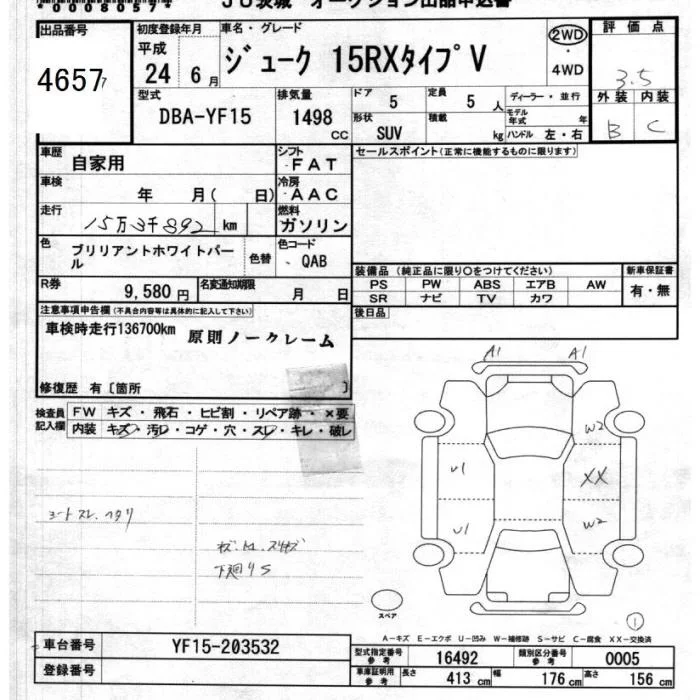 000080577 JU茨城 オークション出品申込書
出品番号 初度登録年月 車名・グレード 評価点
4657 平成 24 6月 ジューク 15RXタイプV 2WD・4WD 3.5
型式 DBA-YF15 排気量 1498 CC
ドア 5 定員 5人 ディーラー・並行
形状 SUV 積載 kg モデル年式 年 ハンドル 左・右
外装 内装
B C
車歴 自家用 シフト FAT セールスポイント(正常に機能するものに限ります)
車検 年 月( 日) 冷房 AAC
走行 15万3千892 km 燃料 ガソリン
色 ブリリアントホワイトパール 色替 色コード QAB
R券 9,580円 名変通知期限 月 日
装備品 (純正品に限り○をつけてください) 新車保証書
PS PW ABS エアB AW 有・無
SR ナビ TV カワ
後日品
注意事項申告欄(不具合内容等は具体的に記入して下さい)
車検時走行136700km 原則ノークレーム
修復歴 有〔箇所 〕
検査員記入欄 FW キズ・飛石・ヒビ割・リペア跡・×要
内装 キズ・汚レ・コゲ・穴・スレ・キレ・破レ
シートスレ、ヘタリ
下廻りS
A1 A1
W2
U1 XX
U1 W2
スペア
①
A－キズ E－エクボ U－凹み W－補修跡 S－サビ C－腐食 XX－交換済
車台番号 YF15-203532
登録番号
型式指定番号 参考 16492 類別区分番号 参考 0005
車庫証明用 参考 長さ 413 cm 幅 176 cm 高さ 156 cm